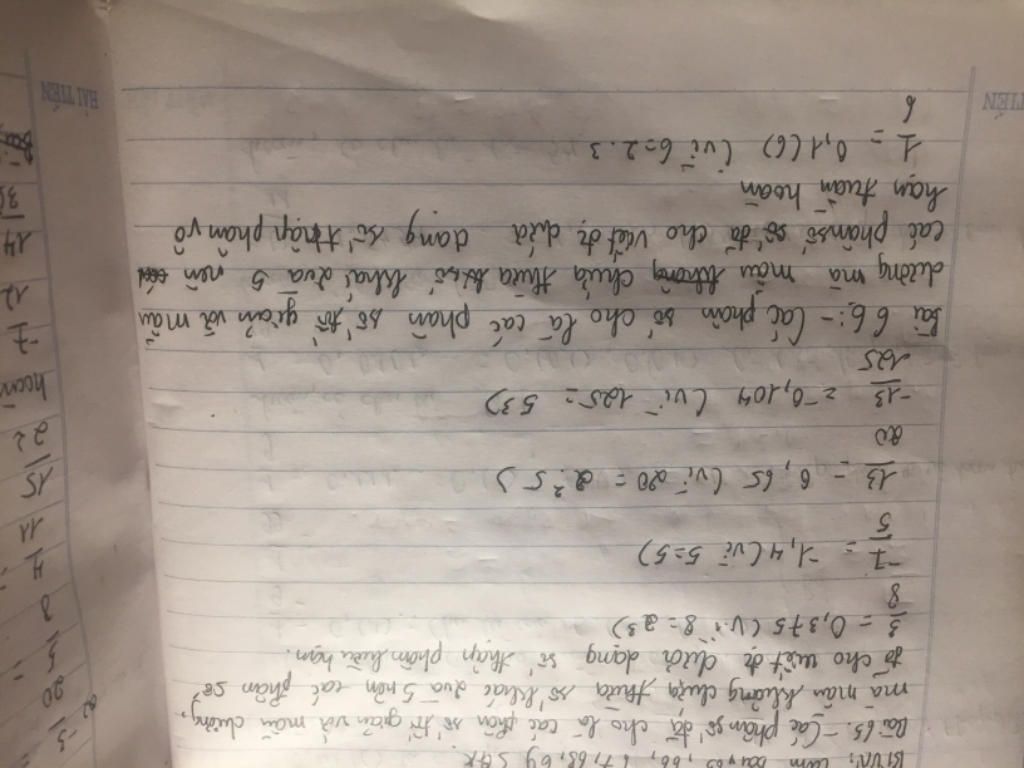 BTVN: Làm bài 65, 66, 67, 68, 69 SGK
Bài 65. - Các phân số đã cho là các phân số tối giản với mẫu dương,
mà mẫu không chứa thừa số khác 2 và 5 nên các phân số
đã cho viết đc dưới dạng số thập phân hữu hạn.
3/8 = 0,375 (vì 8 = 2³)
-7/5 = -1,4 (vì 5=5)
13/20 = 0,65 (vì 20 = 2².5)
-13/125 = -0,104 (vì 125 = 5³)
bài 66: - Các phân số cho là các phân số tối giản và mẫu
dương mà mẫu chứa thừa số khác 2 và 5 nên
các phân số đã cho viết đc dưới dạng số thập phân vô
hạn tuần hoàn
1/6 = 0,1(6) (vì 6=2.3
-3
20
5
8
4
11
15
22
hoàn
-7
12
14
HẢI TIẾN
TIẾN